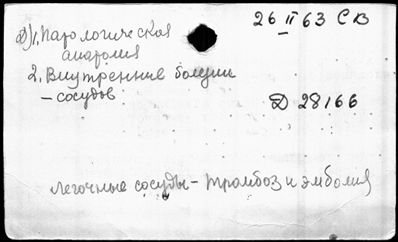 26 II 63 СВ
Д) 1. Патологическая
анатомия
2. Внутренние болезни
– сосудов
Д 28166
легочные сосуды – тромбоз и эмболия